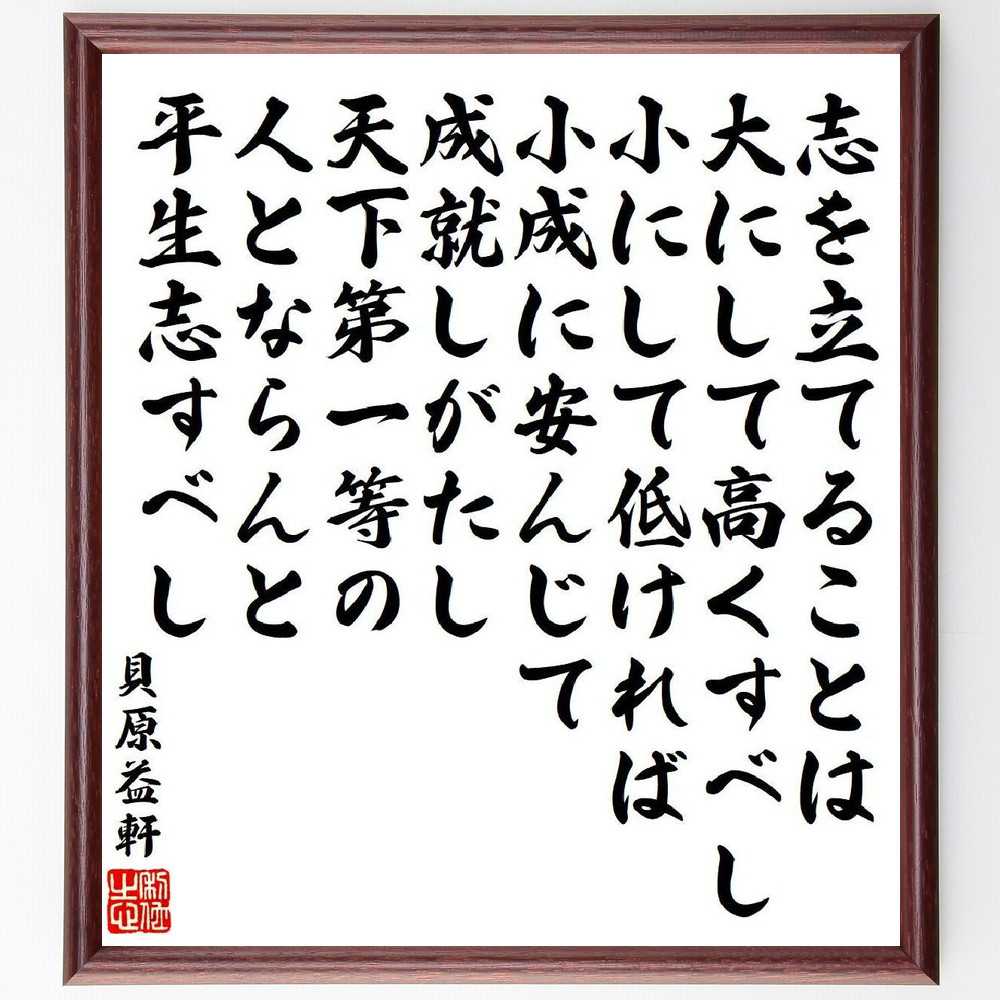 志を立てることは
大にして高くすべし
小にして低ければ
小成に安んじて
成就しがたし
天下第一等の
人とならんと
平生志すべし
貝原益軒